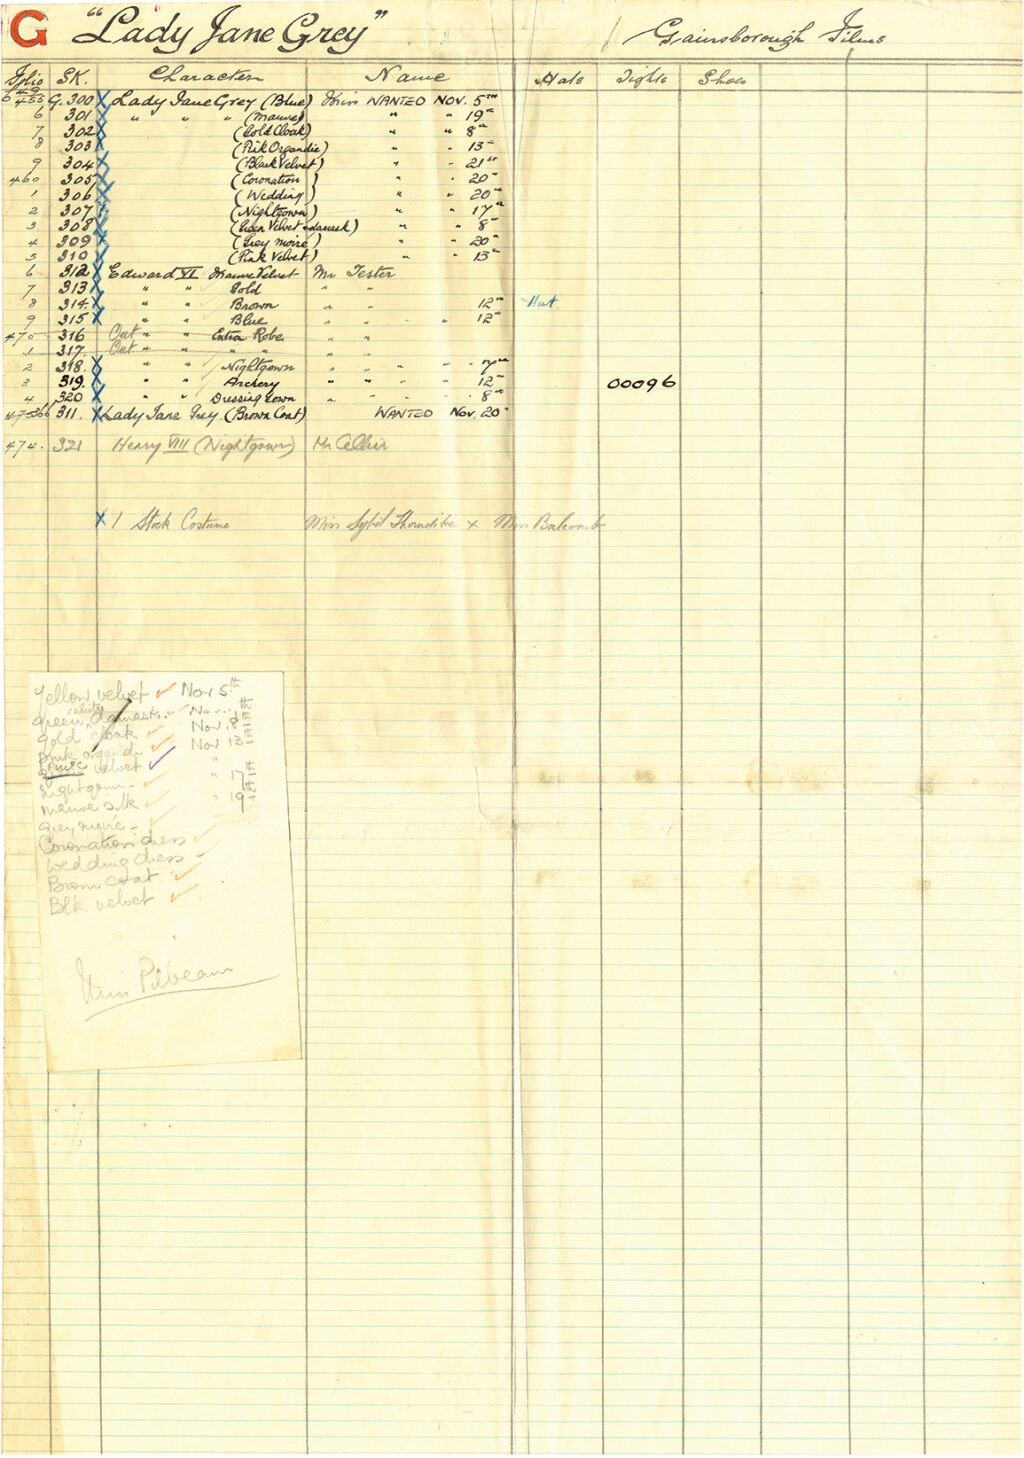 G "Lady Jane Grey" Gainsborough Films
Folio SK. Character Name Hats Tights Shoes
G. 300 X Lady Jane Grey (Blue) Miss WANTED NOV. 5TH
6 301 X " " " (Mauve) " " 19"
7 302 X (Gold Cloak) " " 8"
8 303 X (Pink Organdie) " " 13"
9 304 X (Black Velvet) " " 21st
460 305 X (Coronation) " " 20"
1 306 X (Wedding) " " 20"
2 307 X (Nightgown) " " 17"
3 308 X (Green Velvet & damask) " " 8"
4 309 X (Grey moire) " " 20"
5 310 X (Pink Velvet) " " 13"
6 312 X Edward VI Mauve Velvet Mr Tester
7 313 X " " Gold " "
8 314 X " " Brown " " 12" Hat
9 315 X " " Blue " " " " 12"
470 316 Out " " Extra Robe " "
1 317 Out " " " " " "
2 318 X " " Nightgown " " " " 7"
3 319 X " " Archery " " " " 12" 00096
4 320 X " " Dressing Gown " " " " 8"
311 X Lady Jane Grey (Brown Coat) WANTED NOV. 20"
474. 321 Henry VIII (Nightgown) Mr Cellier
X 1 Stock Costume Miss Sybil Thorndike X Miss
Yellow velvet ✓ Nov 5th
green damask ✓
gold cloak ✓ Nov 8
pink organdi ✓ Nov 13
velvet ✓ "
nightgown - ✓ " 17
mauve silk ✓ " 19
grey moire - ✓
Coronation dress ✓
Wedding dress ✓
Brown coat ✓
Blk velvet ✓
Miss Pilbeam